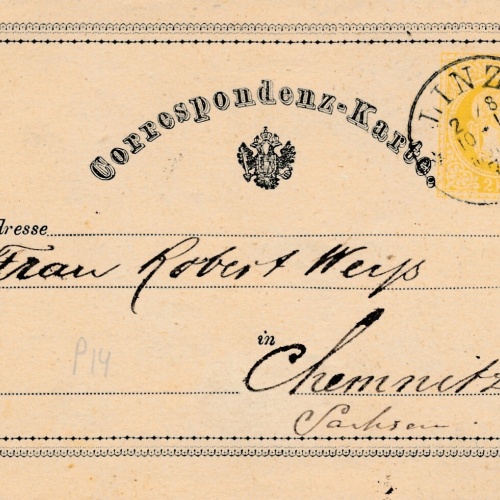 Correspondenz-Karte.
LINZ
dresse
Frau Robert Weyß
in
P14
Chemnitz
Sachsen